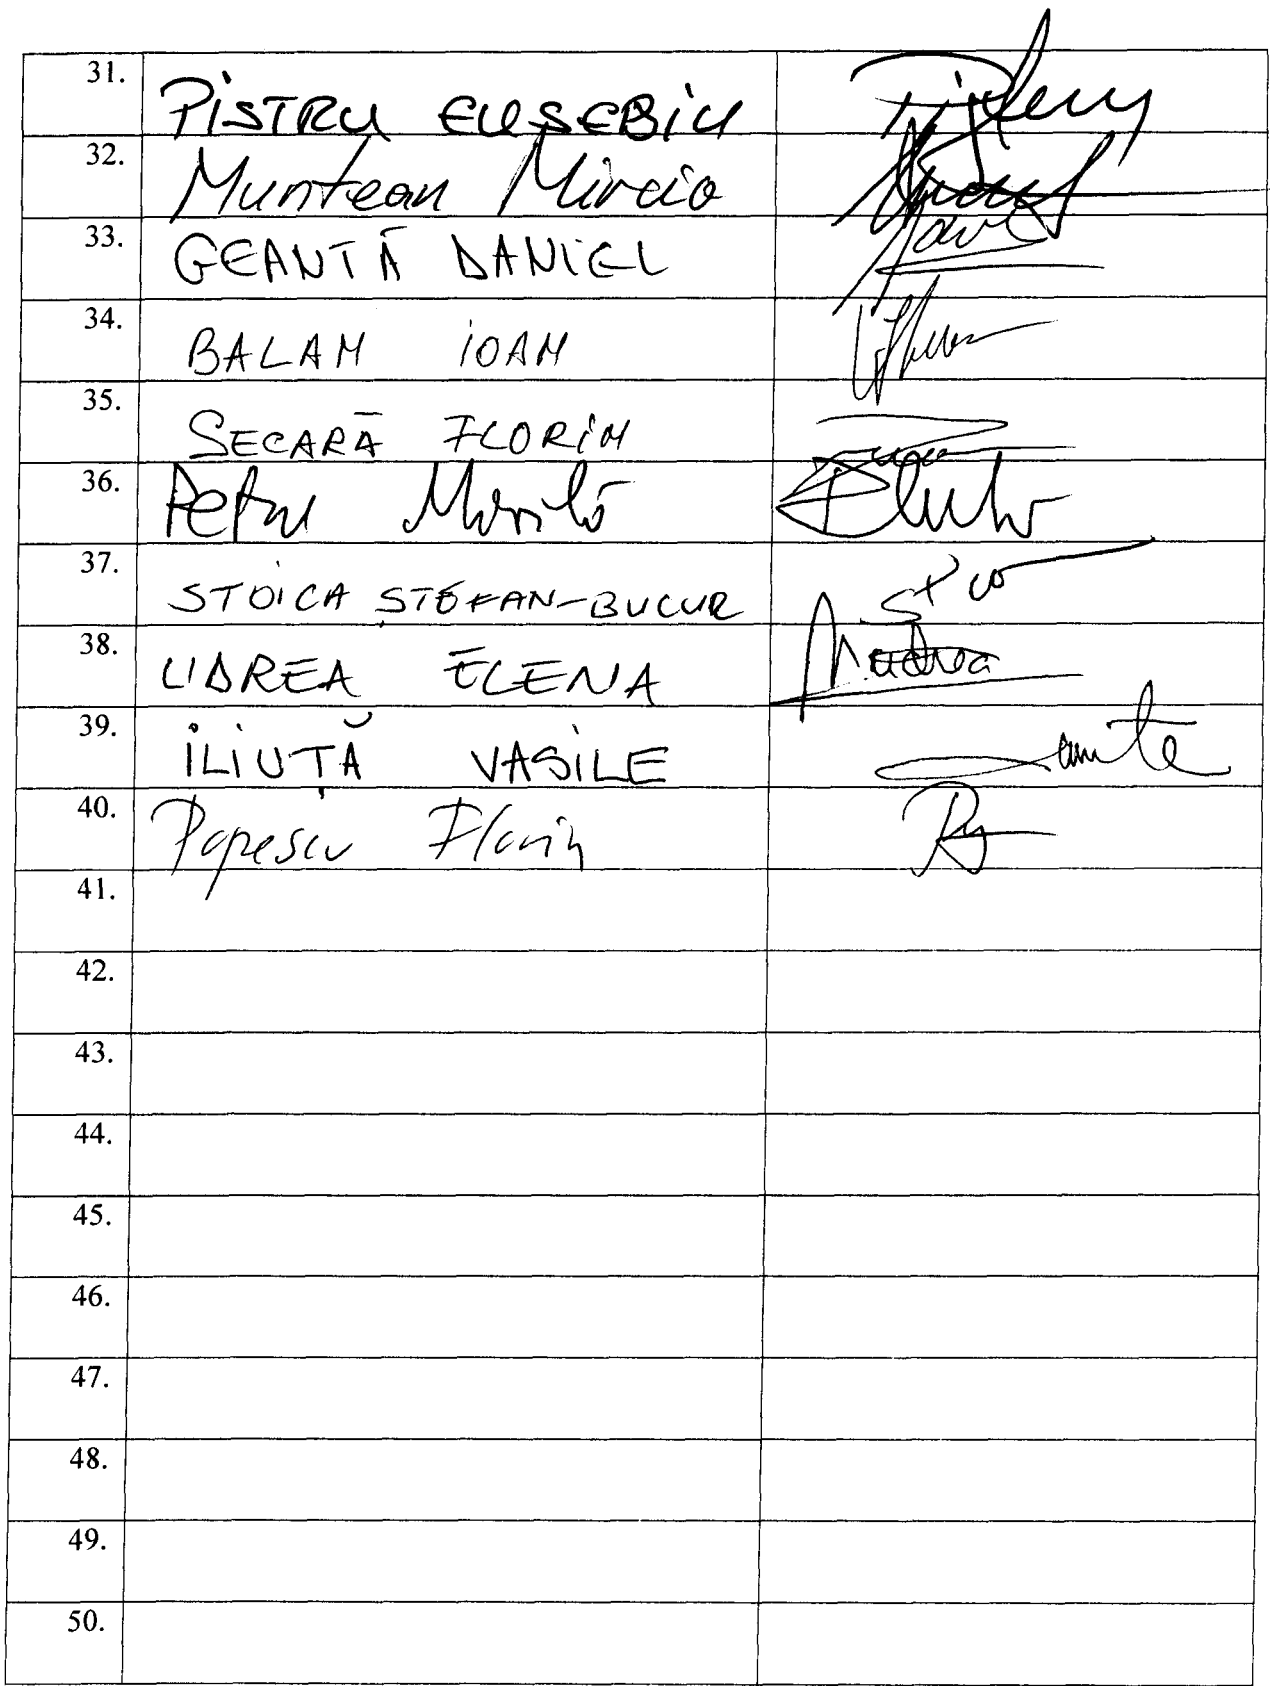 31. PISTRU EUSEBIU
32. Muntean Mircea
33. GEANTĂ DANIEL
34. BALAN IOAN
35. SECARĂ FLORIN
36. Petru Movilă
37. STOICA ȘTEFAN-BUCUR
38. UDREA ELENA
39. ILIUȚĂ VASILE
40. Popescu Florin
41.
42.
43.
44.
45.
46.
47.
48.
49.
50.